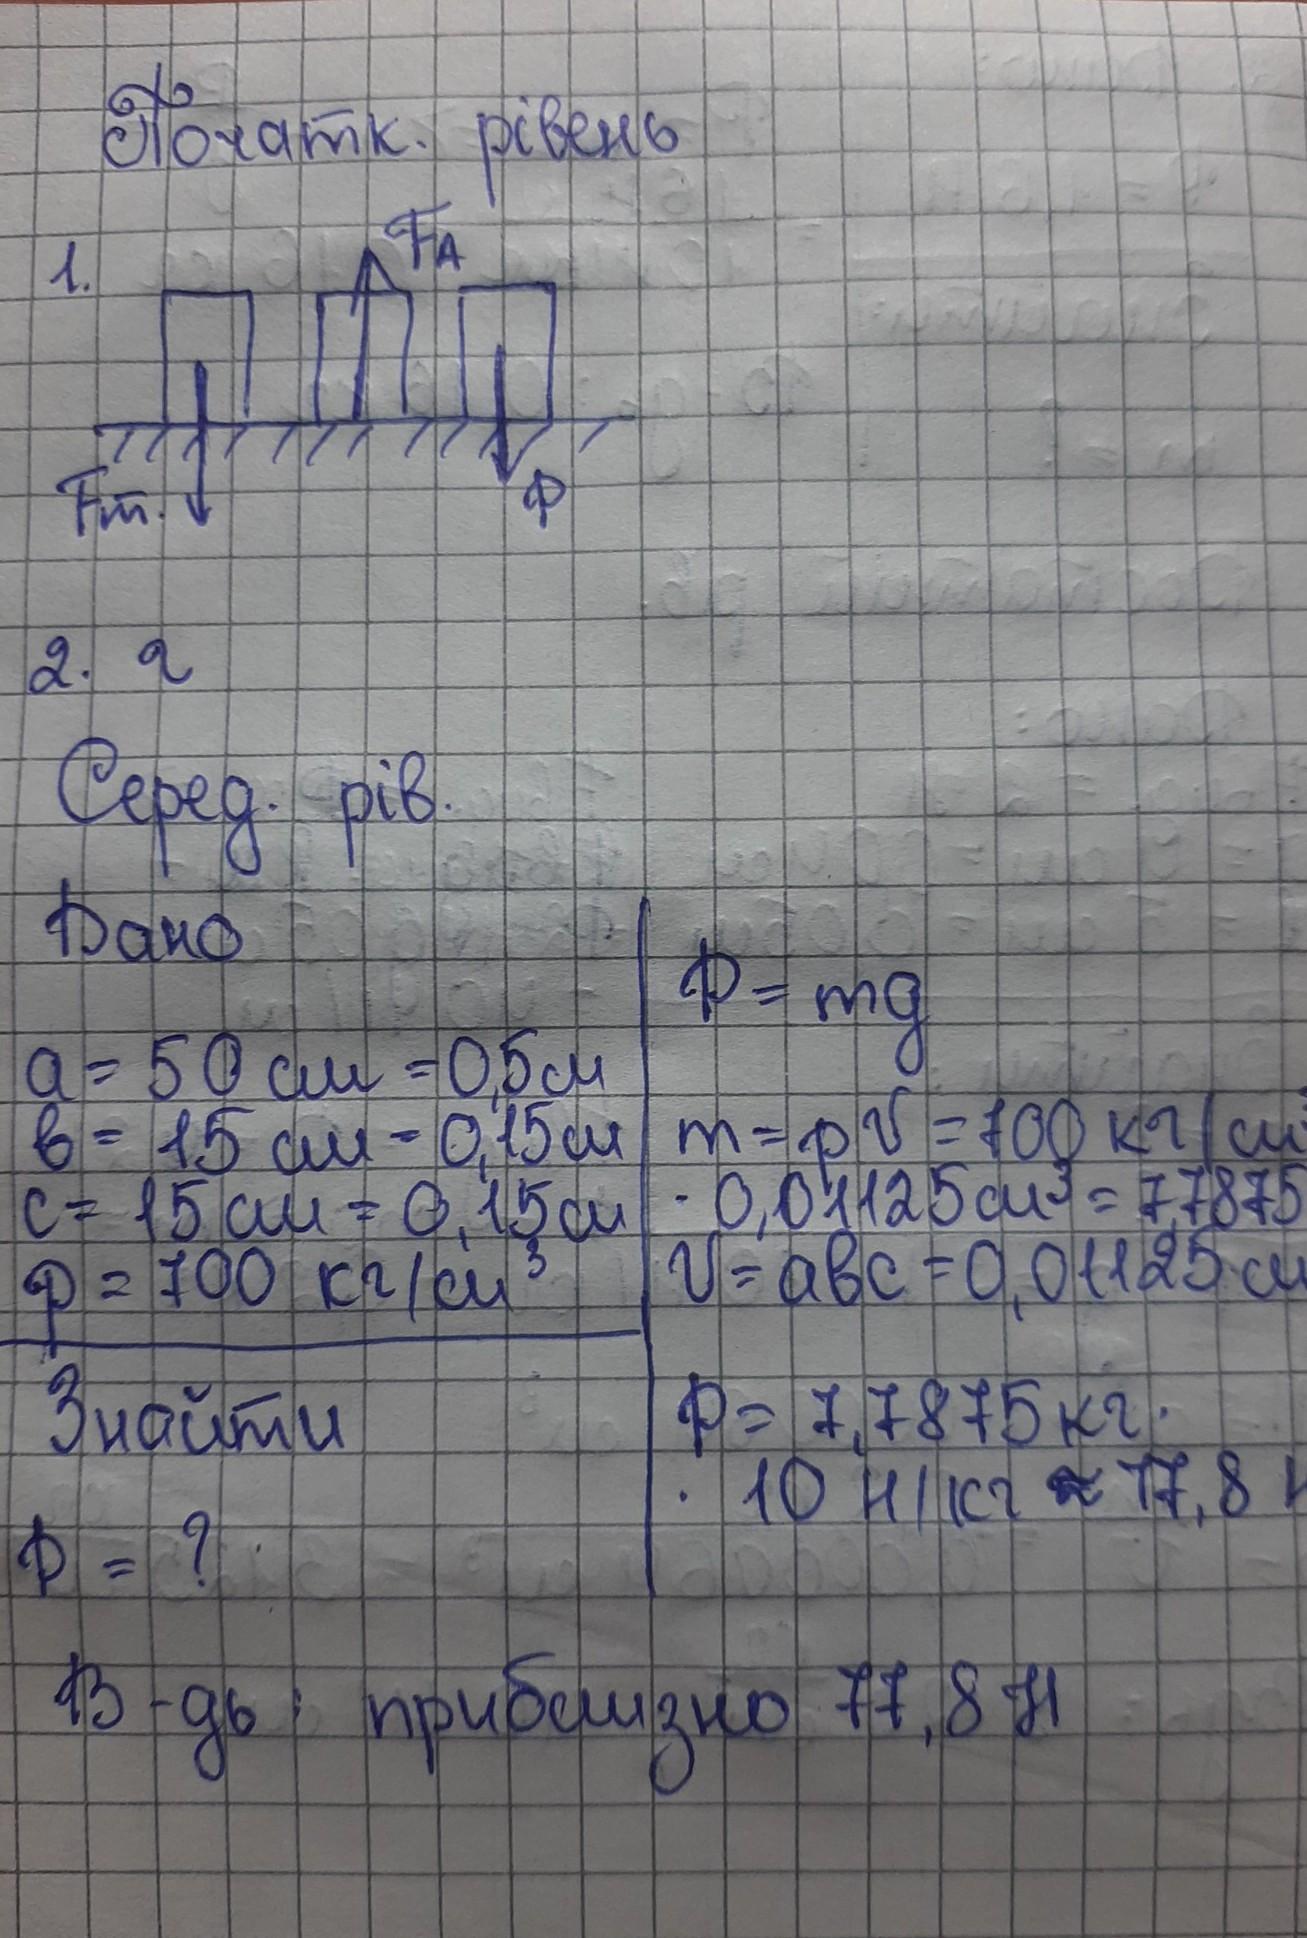 Початк. рівень
1.
FA
Fт.
P
2. г
Серед. рів.
Дано
a = 50 см = 0,5 м
в = 15 см = 0,15 м
c = 15 см = 0,15 м
ρ = 700 кг/м³
Знайти
P = ?
P = mg
m = ρV = 700 кг/м³
· 0,01125 м³ = 7,7875
V = aвc = 0,01125 м
P = 7,7875 кг ·
· 10 Н/кг ≈ 77,8 Н
В-дь: приблизно 77,8 Н